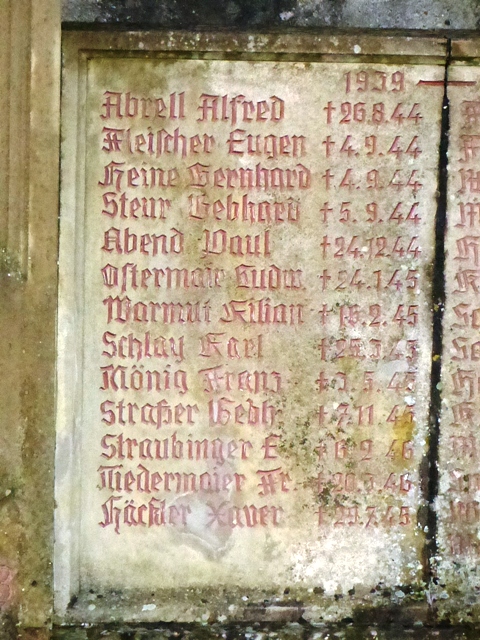 1939 –
Abrell Alfred †26.8.44
Fleischer Eugen †4.9.44
Heine Bernhard †4.9.44
Steur Gebhard †5.9.44
Abend Paul †24.12.44
Ostermaie Ludw. †24.1.45
Warmut Kilian 2.45
Schlay Karl 45
König Franz 5.45
Straßer Gebh. †7.11.45
Straubinger E 2.46
Niedermaier Fr. 46
Xaver 7.45